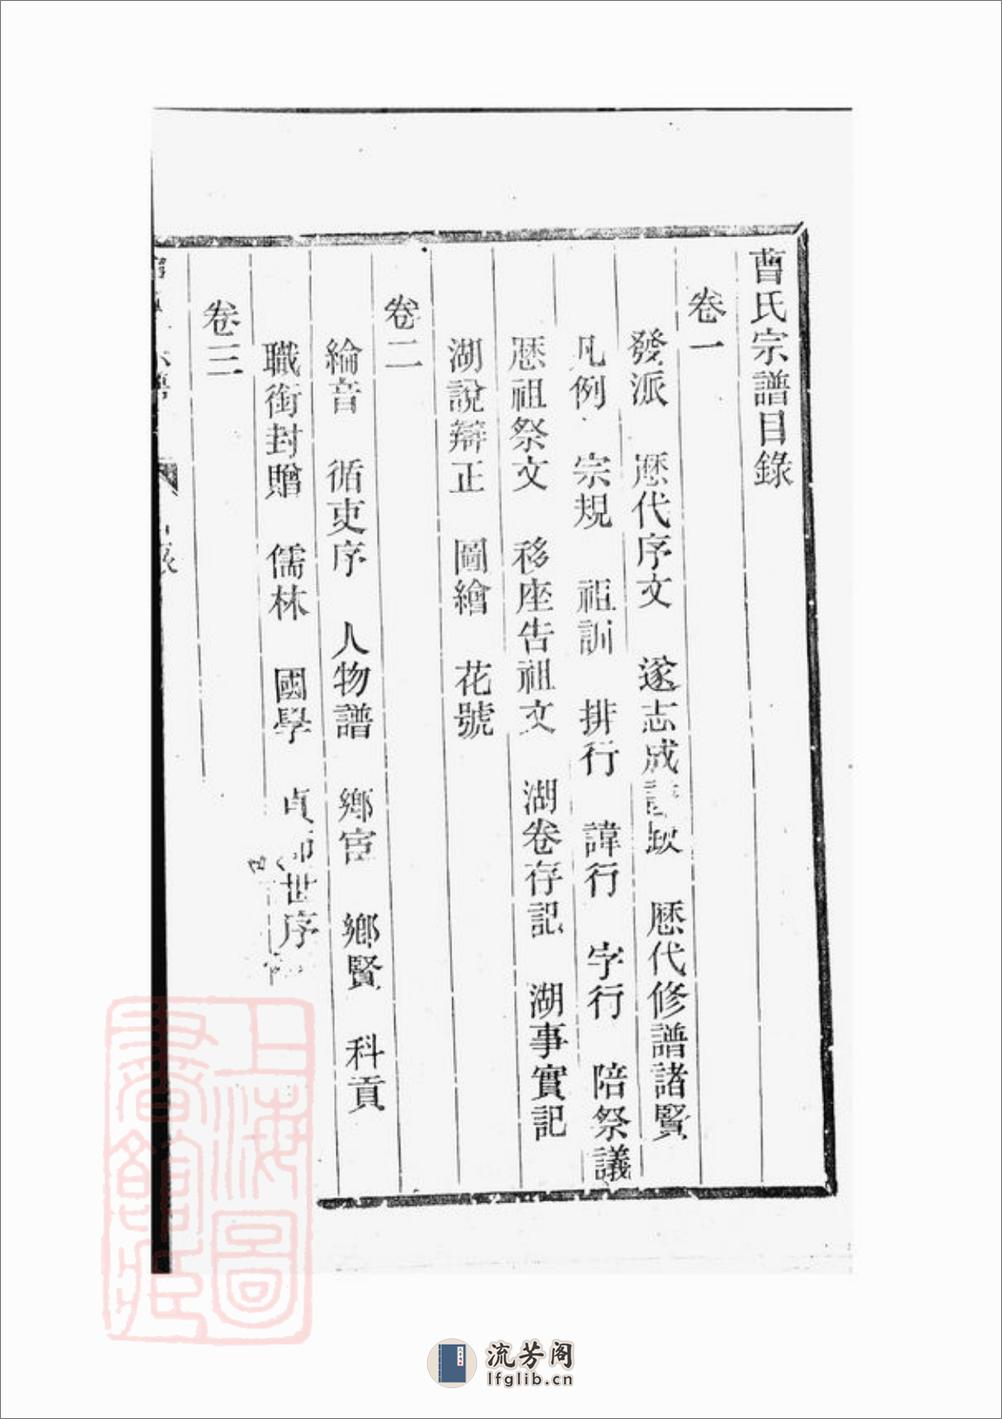 曹氏宗譜目錄
卷一
發派　歷代序文　遂志成　歷代修譜諸賢
凡例　宗規　祖訓　排行　諱行　字行　陪祭議
歷祖祭文　移座告祖文　湖卷存記　湖事實記
湖說辯正　圖繪　花號
卷二
綸音　循吏序　人物譜　鄉宦　鄉賢　科貢
職銜封贈　儒林　國學　世序
卷三
上海圖
書館藏
流芳阁
lfglib.cn